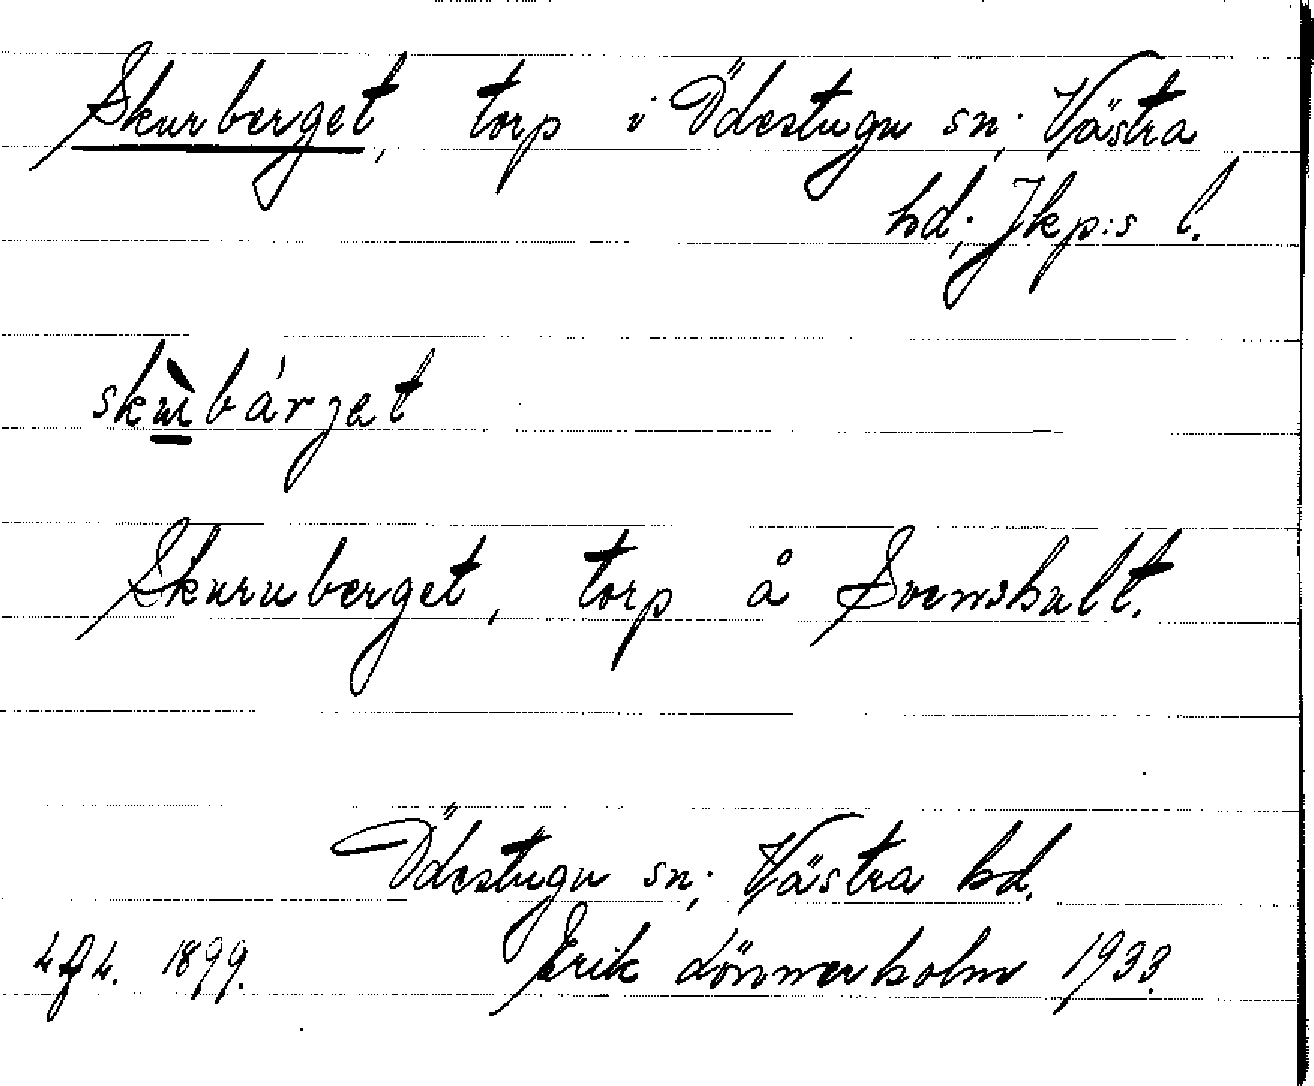 Skurberget, torp i Ödestugu sn; Västra
hd; Jkp:s l.
skùbárjet
Skuruberget, torp å Svenshult.
Ödestugu sn; Västra hd.
1899. Erik Lönnerholm 1933.